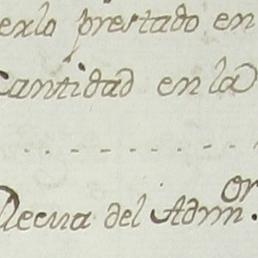 erlo prestado en
Cantidad en la
del Adm.or